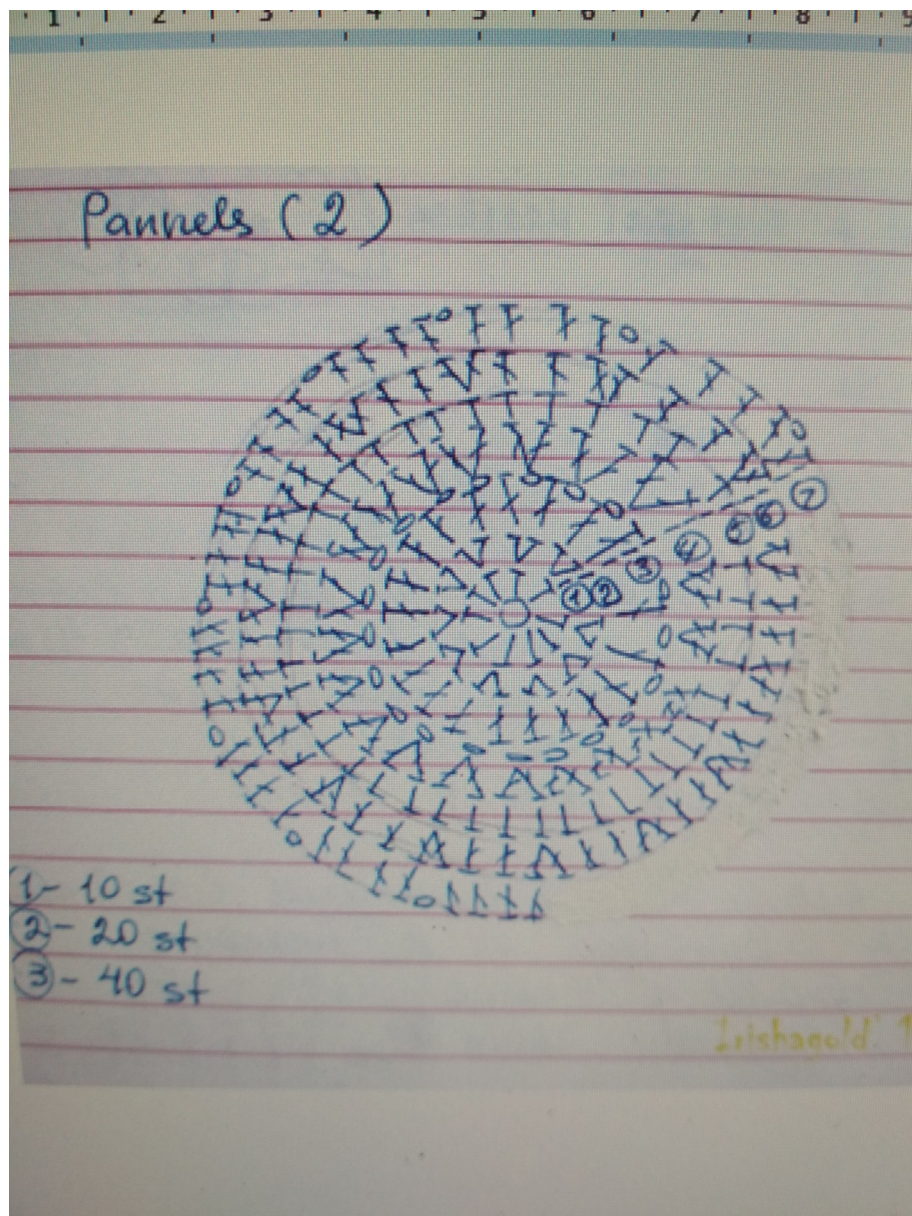 1 2 3 4 5 6 7 8 9
Pannels (2)
7
5 6
4
3
1 2
1 - 10 st
2 - 20 st
3 - 40 st
Irishagold 1